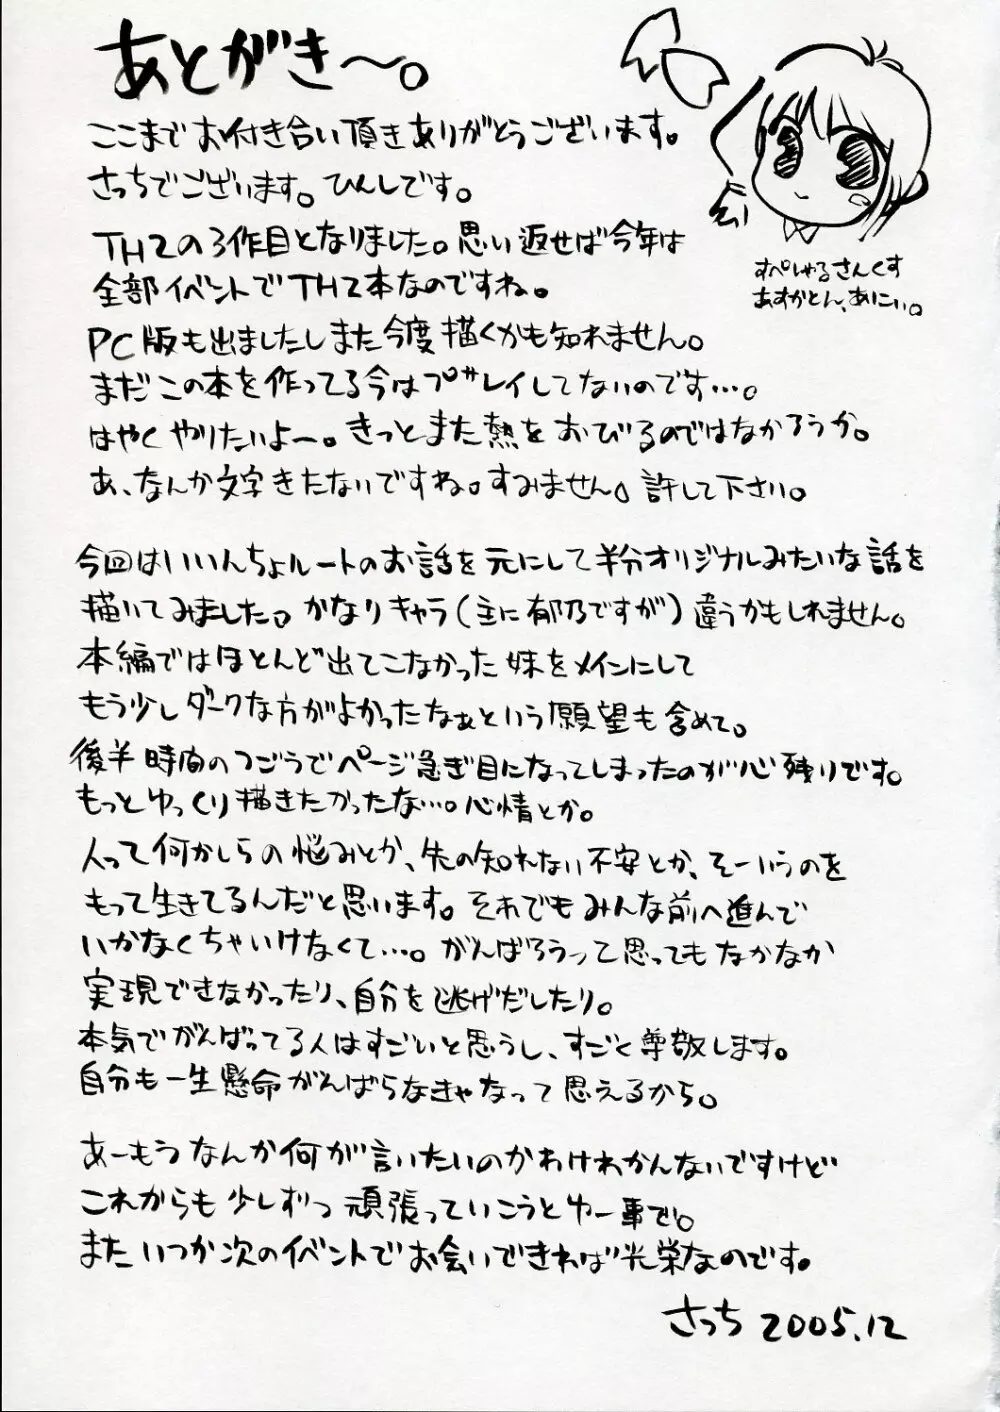 あとがき〜。
ここまでお付き合い頂きありがとうございます。
さっちでございます。ひんしです。
TH2の3作目となりました。思い返せば今年は
全部イベントでTH2本なのですね。
PC版も出ましたしまた今度描くかも知れません。
まだこの本を作ってる今はプレイしてないのです…。
はやくやりたいよー。きっとまた熱をおびるのではなかろうか。
あ、なんか文字きたないですね。すみません。許して下さい。
すぺしゃるさんくす
あすかとん、あにぃ。
今回はいいんちょルートのお話を元にして半分オリジナルみたいな話を
描いてみました。かなりキャラ(主に郁乃ですが)違うかもしれません。
本編ではほとんど出てこなかった妹をメインにして
もう少しダークな方がよかったなぁという願望も含めて。
後半時間のつごうでページ急ぎ目になってしまったのが心残りです。
もっとゆっくり描きたかったな…。心情とか。
人って何かしらの悩みとか、先の知れない不安とか、そーいうのを
もって生きてるんだと思います。それでもみんな前へ進んで
いかなくちゃいけなくて…。がんばろうって思ってもなかなか
実現できなかったり、自分を逃げだしたり。
本気でがんばってる人はすごいと思うし、すごく尊敬します。
自分も一生懸命がんばらなきゃなって思えるから。
あーもうなんか何が言いたいのかわけわかんないですけど
これからも少しずつ頑張っていこうとゆー事で。
またいつか次のイベントでお会いできれば光栄なのです。
さっち 2005.12